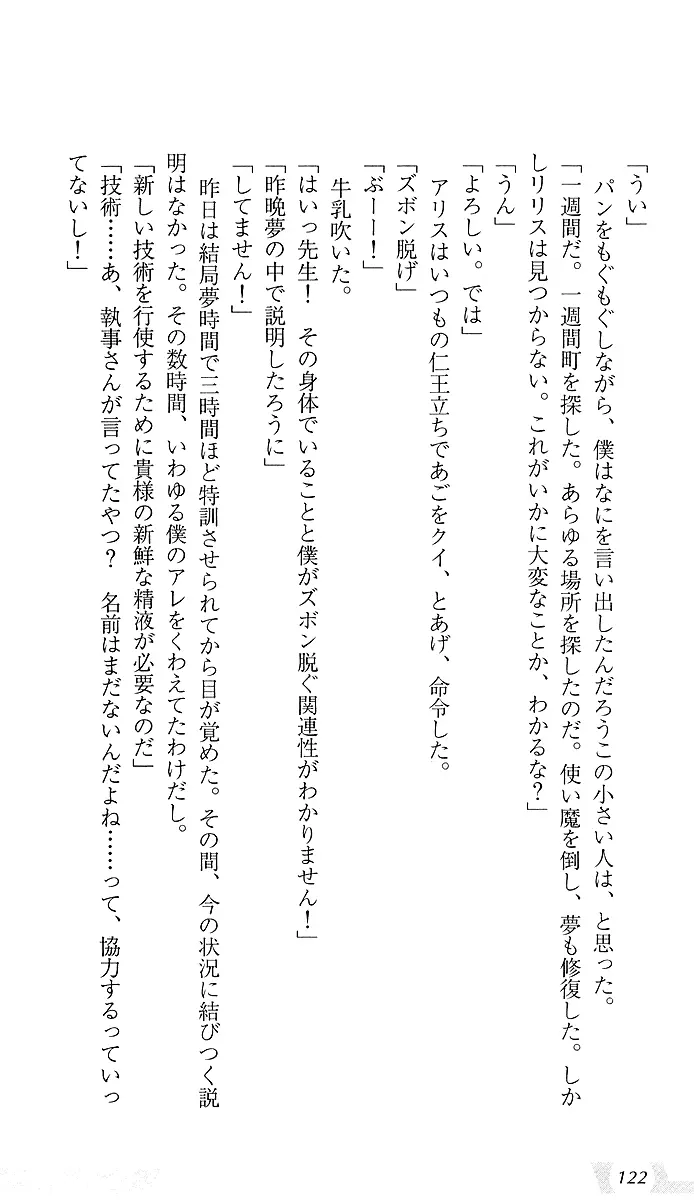 「うい」
　パンをもぐもぐしながら、僕はなにを言い出したんだろうこの小さい人は、と思った。
「一週間だ。一週間町を探した。あらゆる場所を探したのだ。使い魔を倒し、夢も修復した。しか
しリリスは見つからない。これがいかに大変なことか、わかるな？」
「うん」
「よろしい。では」
　アリスはいつもの仁王立ちであごをクイ、とあげ、命令した。
「ズボン脱げ」
「ぶーー！」
　牛乳吹いた。
「はいっ先生！　その身体でいることと僕がズボン脱ぐ関連性がわかりません！」
「昨晩夢の中で説明したろうに」
「してません！」
　昨日は結局夢時間で三時間ほど特訓させられてから目が覚めた。その間、今の状況に結びつく説
明はなかった。その数時間、いわゆる僕のアレをくわえてたわけだし。
「新しい技術を行使するために貴様の新鮮な精液が必要なのだ」
「技術……あ、執事さんが言ってたやつ？　名前はまだないんだよね……って、協力するっていっ
てないし！」
122